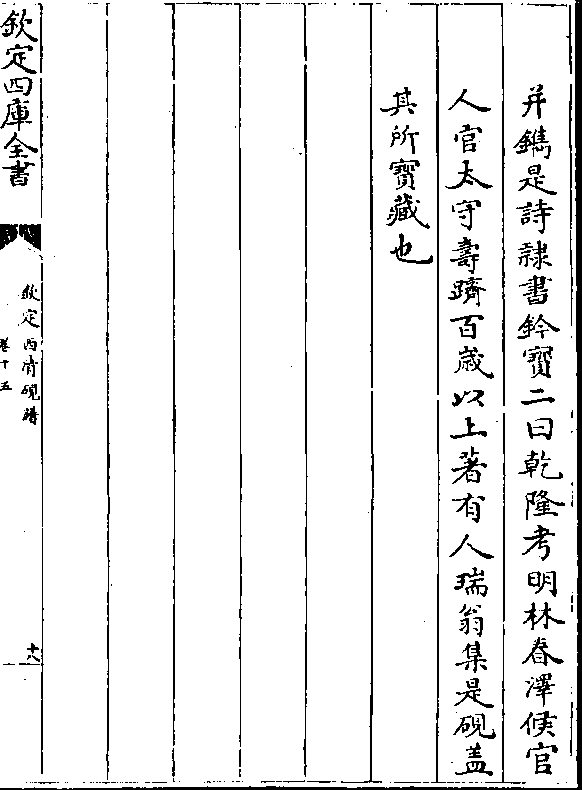 并鐫是詩隸書鈐寶二曰乾隆考明林春澤候官
人官太守壽躋百歲以上著有人瑞翁集是硯盖
其所寶藏也
欽定四庫全書
欽定西清硯譜
卷十五
十八